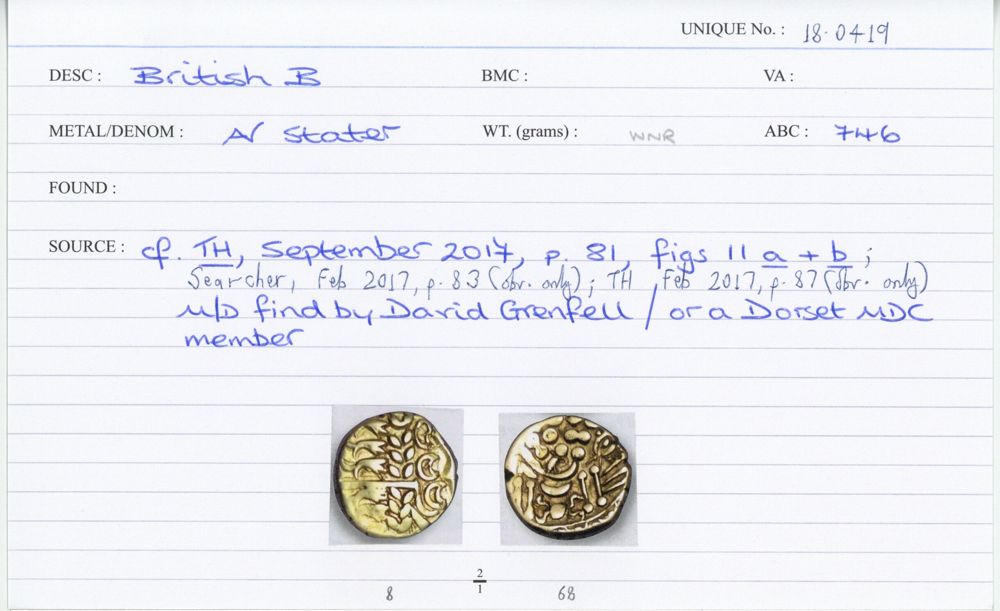 UNIQUE No. : 18.0419
DESC : British B BMC : VA :
METAL/DENOM : AV Stater WT. (grams) : WNR ABC : 746
FOUND :
SOURCE : cf. TH, September 2017, p. 81, figs 11 a + b ;
Searcher, Feb 2017, p. 83 (obv. only); TH, Feb 2017, p. 87 (obv. only)
M/D find by David Grenfell / or a Dorset MDC
member
2
1
8 68